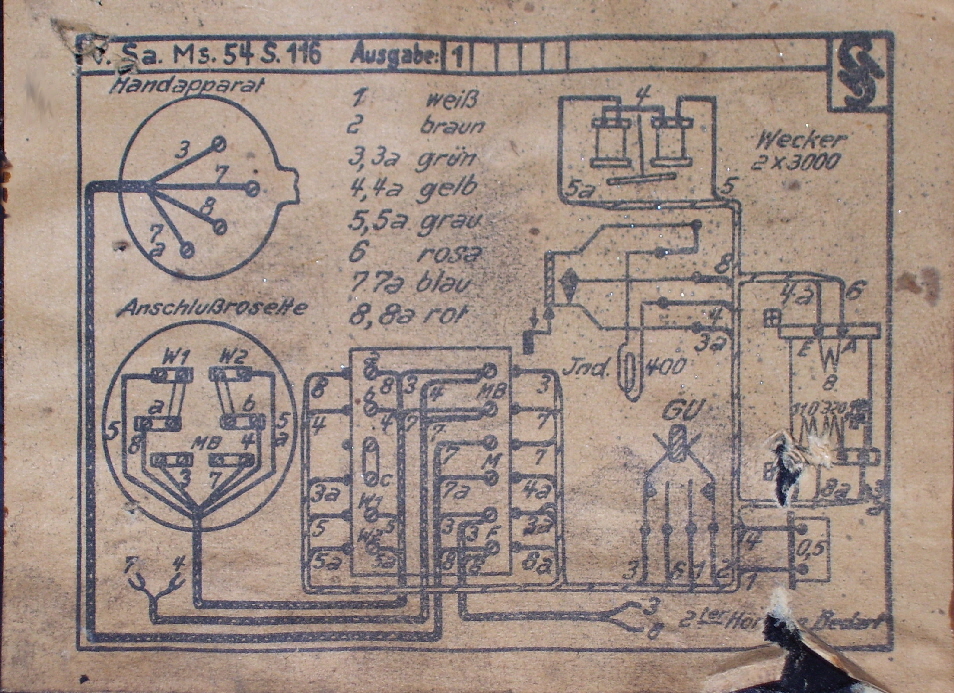 Sa. Ms. 54 S. 116 Ausgabe: 1
Handapparat
3
7
8
7
a
1 weiß
2 braun
3,3a grün
4,4a gelb
5,5a grau
6 rosa
7 7a blau
8,8a rot
4
5a
5
Wecker
2 x 3000
8
4
3a
Jnd.
400
4a
6
E
A
8
110 320
8a
3
GU
3
6
1
2
14
1
0,5
Anschlußrosette
W1
W2
a
b
5
8
MB
4
5
a
3
7
7
4
8
4
3a
5
5a
a
8
3
b
4
7
c
W1
5
W2
5a
4
7
MB
7
M
7a
3
3
F
8
6
3
7
7
4a
3a
8a
3
8
2ter Bedarf